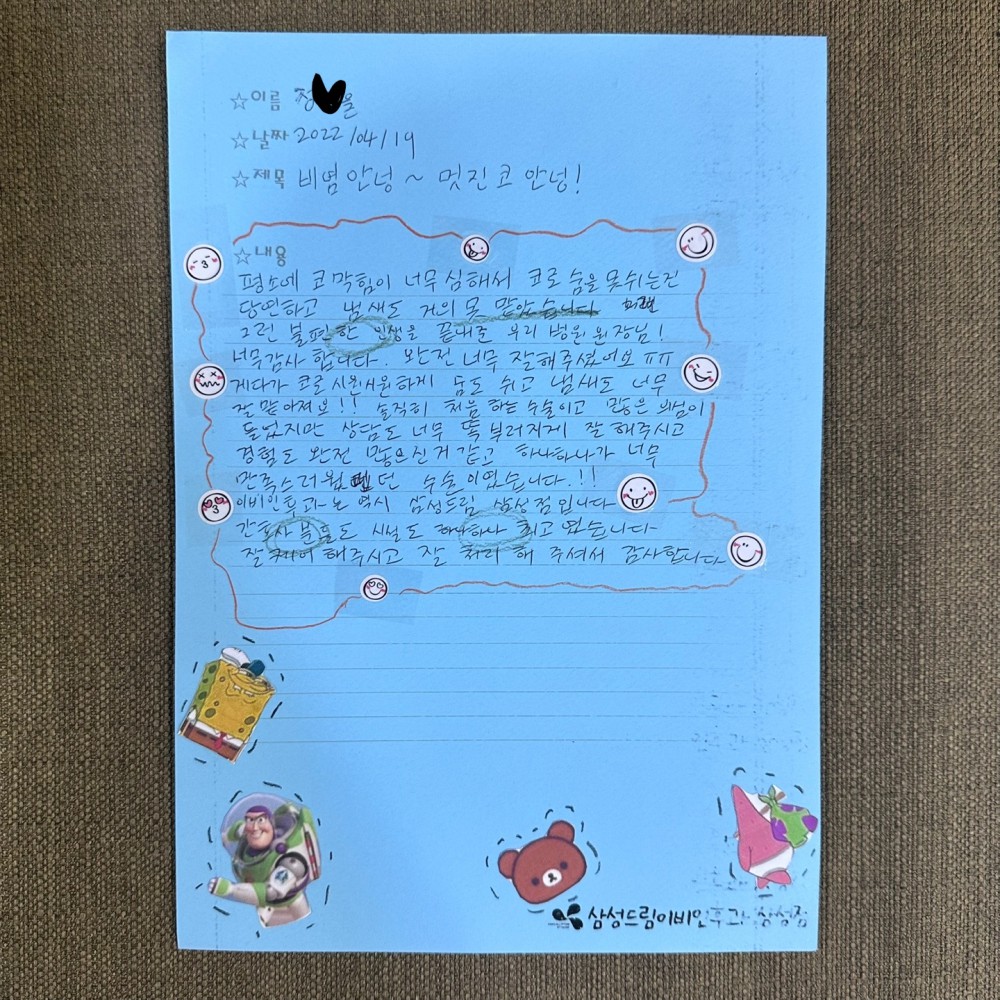 ☆이름 정 율
☆날짜 2022/04/19
☆제목 비염안녕~ 멋진코 안녕!
☆내용
평소에 코막힘이 너무 심해서 코로 숨을 못쉬는건
당연하고 냄새도 거의 못 맡았습니다
그런 불편한 인생을 끝내준 우리 병원 원장님!
너무감사합니다. 완전 너무 잘해주셨어요 ㅠㅠ
게다가 코로 시원시원하게 숨도 쉬고 냄새도 너무
잘 맡아져요!! 솔직히 처음 하는 수술이고 많은 의심이
들었지만 상담도 너무 똑부러지게 잘 해주시고
경험도 완전 많으신거 같고 하나하나가 너무
만족스러웠던 수술이였습니다.!!
이비인후과는 역시 삼성드림 삼성점입니다
간호사분들도 시설도 하나하나 최고였습니다
잘 케어해주시고 잘 처리해 주셔서 감사합니다
삼성드림이비인후과 삼성점